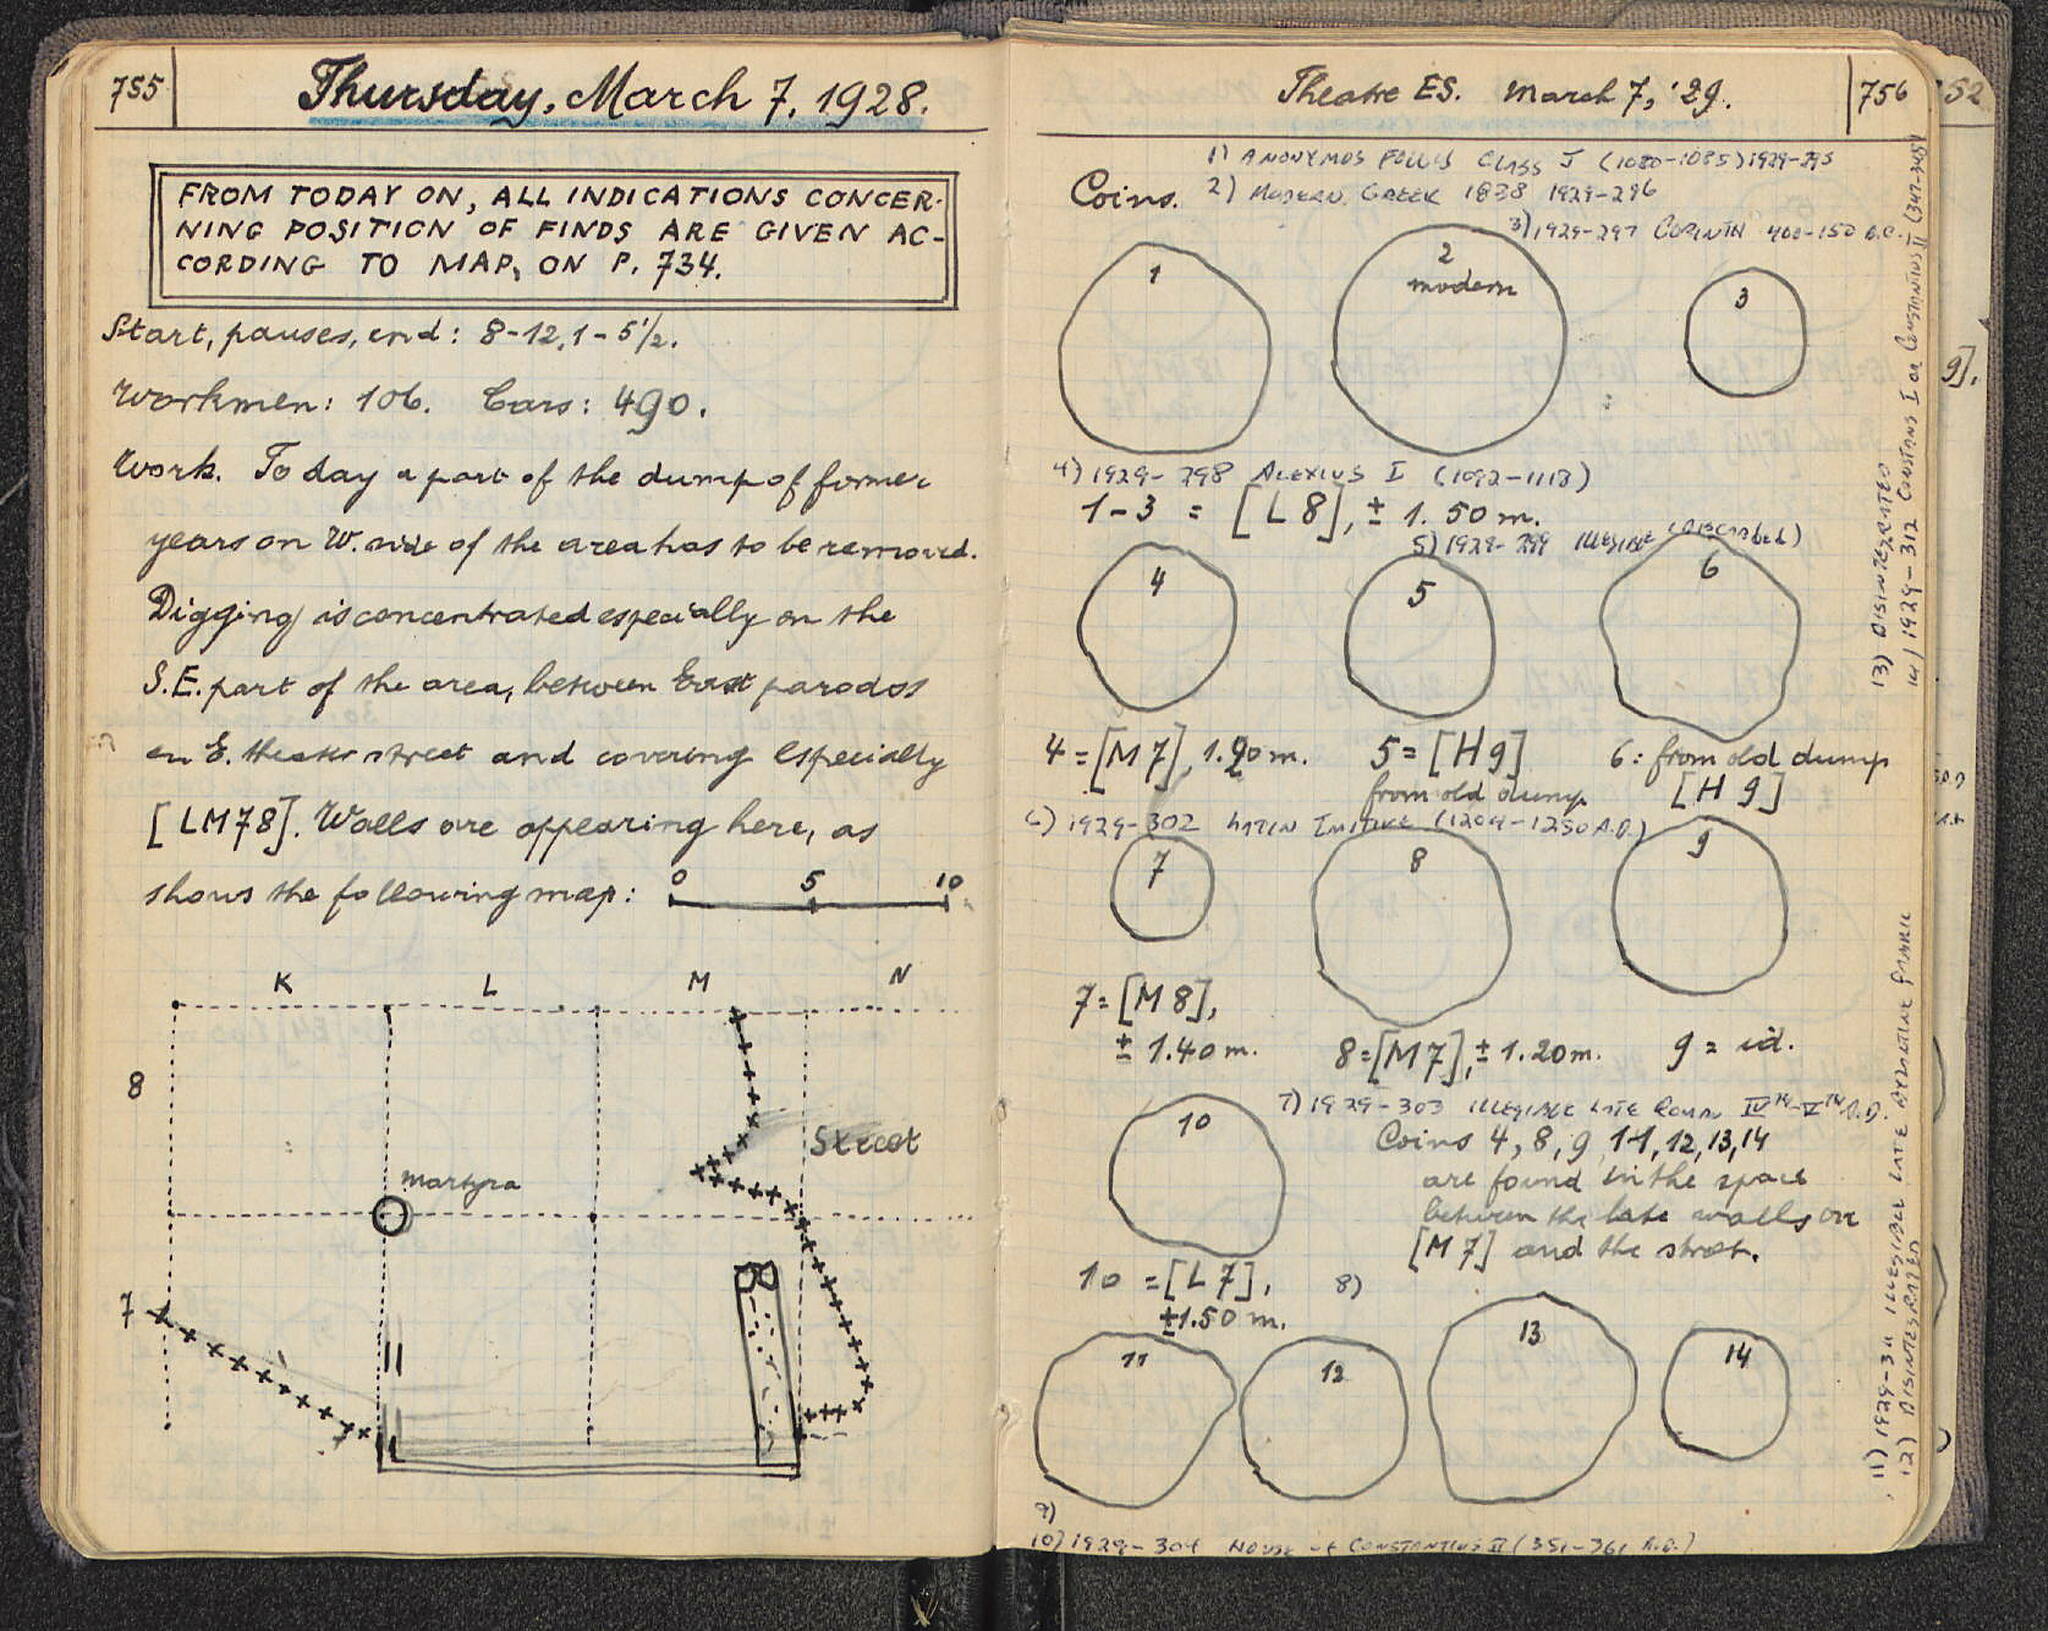 755
Thursday, March 7, 1928.
FROM TODAY ON, ALL INDICATIONS CONCER-
NING POSITION OF FINDS ARE GIVEN AC-
CORDING TO MAP, ON P. 734.
Start, pauses, end: 8-12, 1-5 1/2.
Workmen: 106. Cars: 490.
Work. To day a part of the dump of former
years on W. side of the area has to be removed.
Digging is concentrated especially on the
S.E. part of the area, between East parodos
en E. theater street and covering especially
[LM78]. Walls are appearing here, as
shows the following map: 0 5 10
K L M N
8
Street
martyra
7
Theatre ES. March 7, '29.
756
52
1) ANONYMOS FOLLIS CLASS J (1080-1085) 1929-295
Coins. 2) MODERN GREEK 1838 1929-296
3) 1929-297 CORINTH 400-150 B.C.
1
2
modern
3
4) 1929-298 ALEXIUS I (1092-1118)
1-3 = [L8], ± 1.50 m.
5) 1929-299 ILLEGIBLE (Discarded)
4 5 6
4 = [M7], 1.20 m. 5 = [H9] 6: from old dump
from old dump [H9]
6) 1929-302 LATIN IMITIVE (1204-1250 A.D.)
7 8 9
7 = [M8],
± 1.40 m. 8 = [M7], ± 1.20 m. 9 = id.
10
7) 1929-303 ILLEGIBLE LATE ROMAN IVTH-VTH A.D.
Coins 4, 8, 9, 11, 12, 13, 14
are found in the space
between the late walls on
[M7] and the street.
10 = [L7], 8)
±1.50 m.
11 12 13 14
9)
10) 1929-304 HOUSE of CONSTANTIUS II (351-361 A.D.)
11) 1929-311 ILLEGIBLE LATE BYZANTINE FABRIC
12) DISINTEGRATED
13) DISINTEGRATED
14) 1929-312 CONSTANS I or CONSTANTIUS II (347-348)
9].